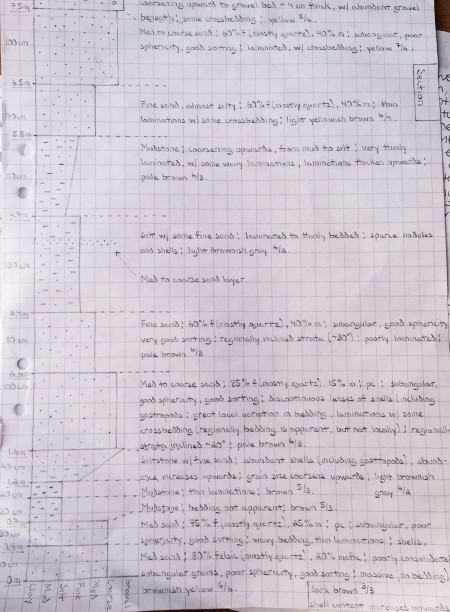 7.5m
coarsening upward to gravel bed ~4cm thick, w/ abundant gravel
beneath; some crossbedding; yellow
Med to coarse sand; 60% f (mostly quartz), 40% m; subangular, poor
sphericity, good sorting; laminated, w/ crossbedding; yellow 7/6.
100cm
6.5m
Section
Fine sand, almost silty; 60% f (mostly quartz), 40% m; thin
laminations w/ some crossbedding; light yellowish brown
5.8m
Mudstone; coarsening upwards, from mud to silt; very thinly
laminated, w/ some wavy laminations, laminations thicken upwards;
pale brown 6/3.
Silt w/ some fine sand; laminated to thinly bedded; sparse nodules
and shells; light brownish gray 6/2.
Med to coarse sand layer
Fine sand; 60% f (mostly quartz), 40% m; subangular, good sphericity
very good sorting; regionally inclined strata (~30°); poorly laminated;
pale brown 6/3
100cm
Med to coarse sand; 85% f (mostly quartz), 15% m; pc; subangular,
good sphericity, good sorting; discontinuous lenses of shells (including
gastropods; great local variation in bedding, laminations w/ some
crossbedding (regionally bedding is apparent, but not locally); regionally
strata inclined ~20°; pale brown 6/3.
Siltstone w/ fine sand; abundant shells (including gastropods), abund-
ance increases upwards; grain size coarsens upwards; light brownish
gray 6/2
Mudstone; thin laminations; brown 5/3.
Mudstone; bedding not apparent; brown 5/3.
Med sand; 75% f (mostly quartz), 25% m; pc; subangular, poor
sphericity, good sorting; wavy bedding, thin laminations; shells.
Med sand; 80% felsic (mostly quartz), 20% mafic; poorly consolidated
subangular grains, poor sphericity, good sorting; massive, no bedding
brownish yellow 6/6.
Dark brown 3/3
shell content increases upwards
0m
Clay
Mud
Silt
Fine
Med
Coarse
Gravel